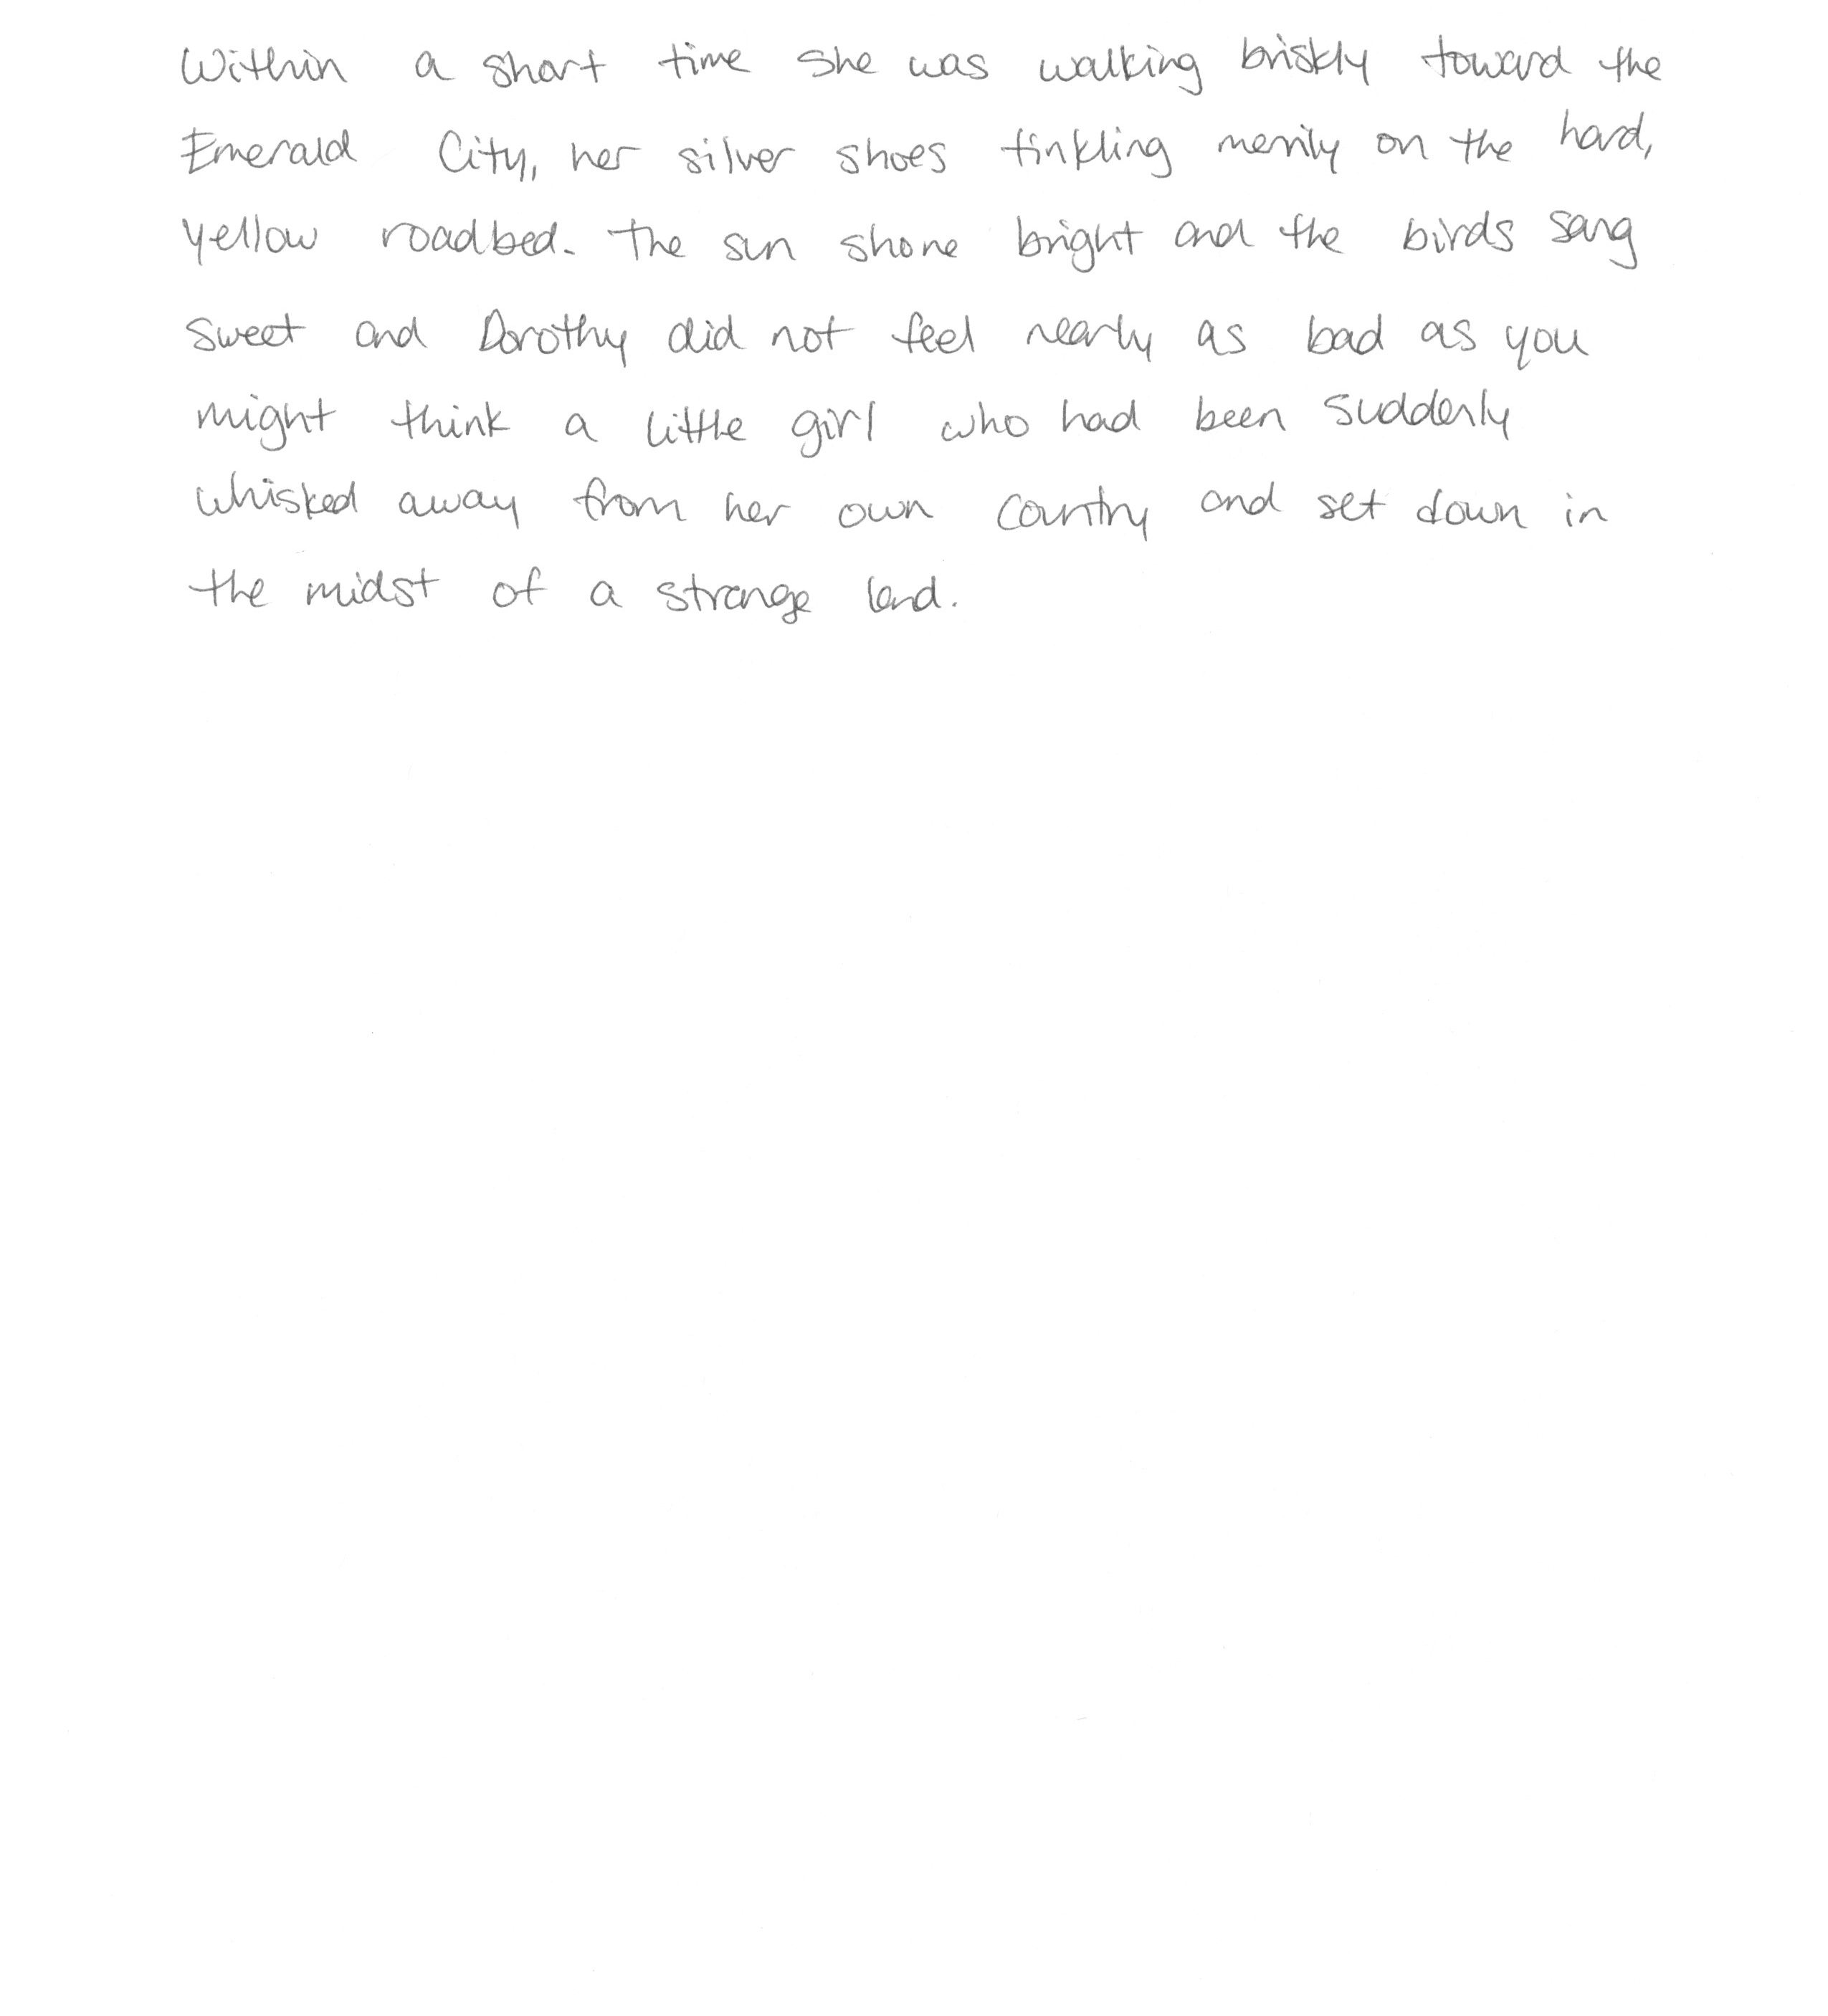 Within a short time she was walking briskly toward the
Emerald City, her silver shoes tinkling merrily on the hard,
yellow roadbed. The sun shone bright and the birds sang
sweet and Dorothy did not feel nearly as bad as you
might think a little girl who had been suddenly
whisked away from her own country and set down in
the midst of a strange land.